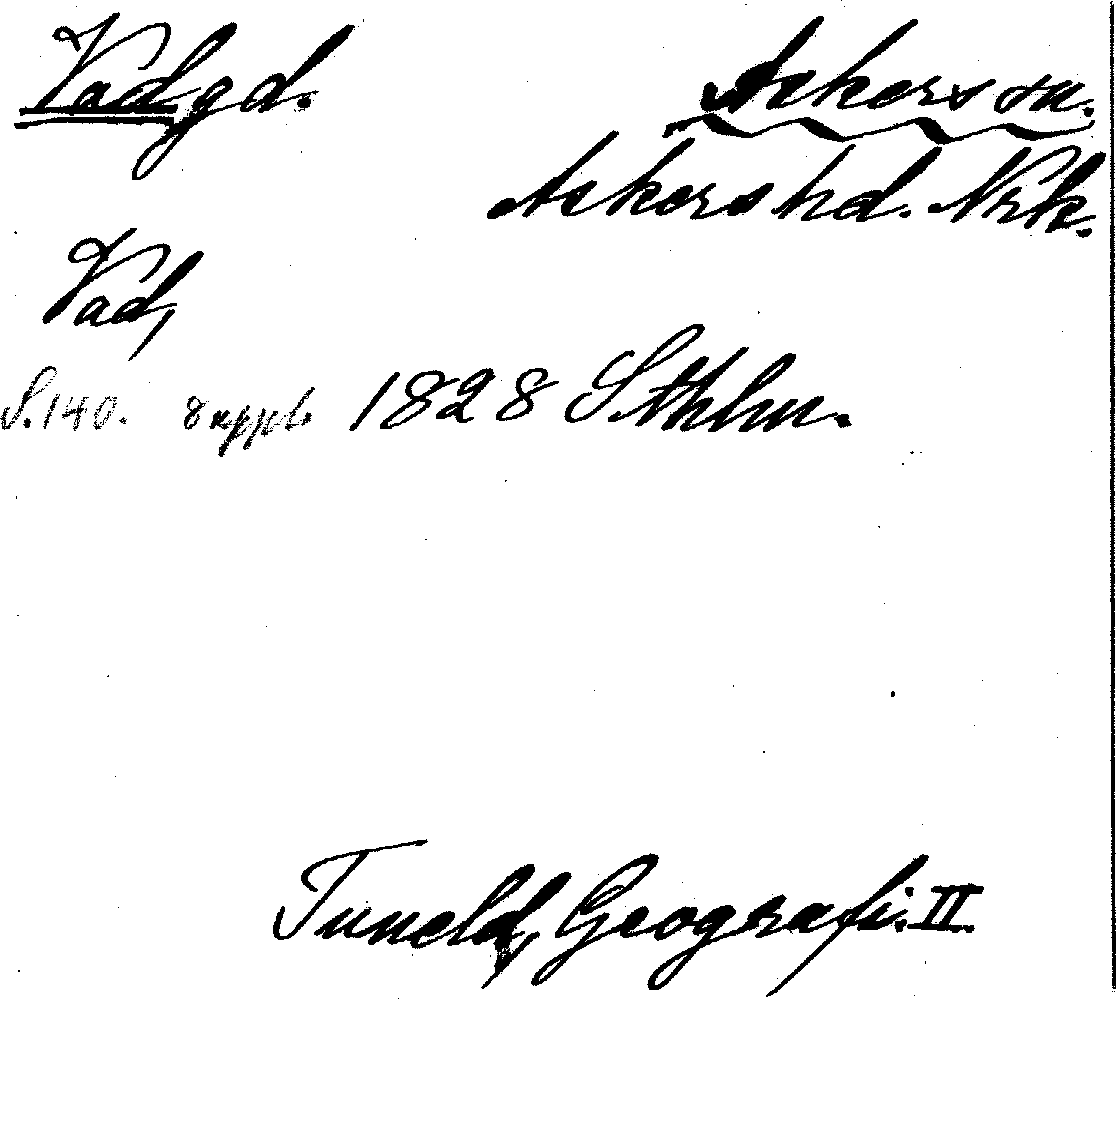 Vad gd. Askers sn.
Askers hd. Nrk.
Vad,
S. 140. 8 uppl. 1828 Sthlm.
Tuneld, Geografi. II.